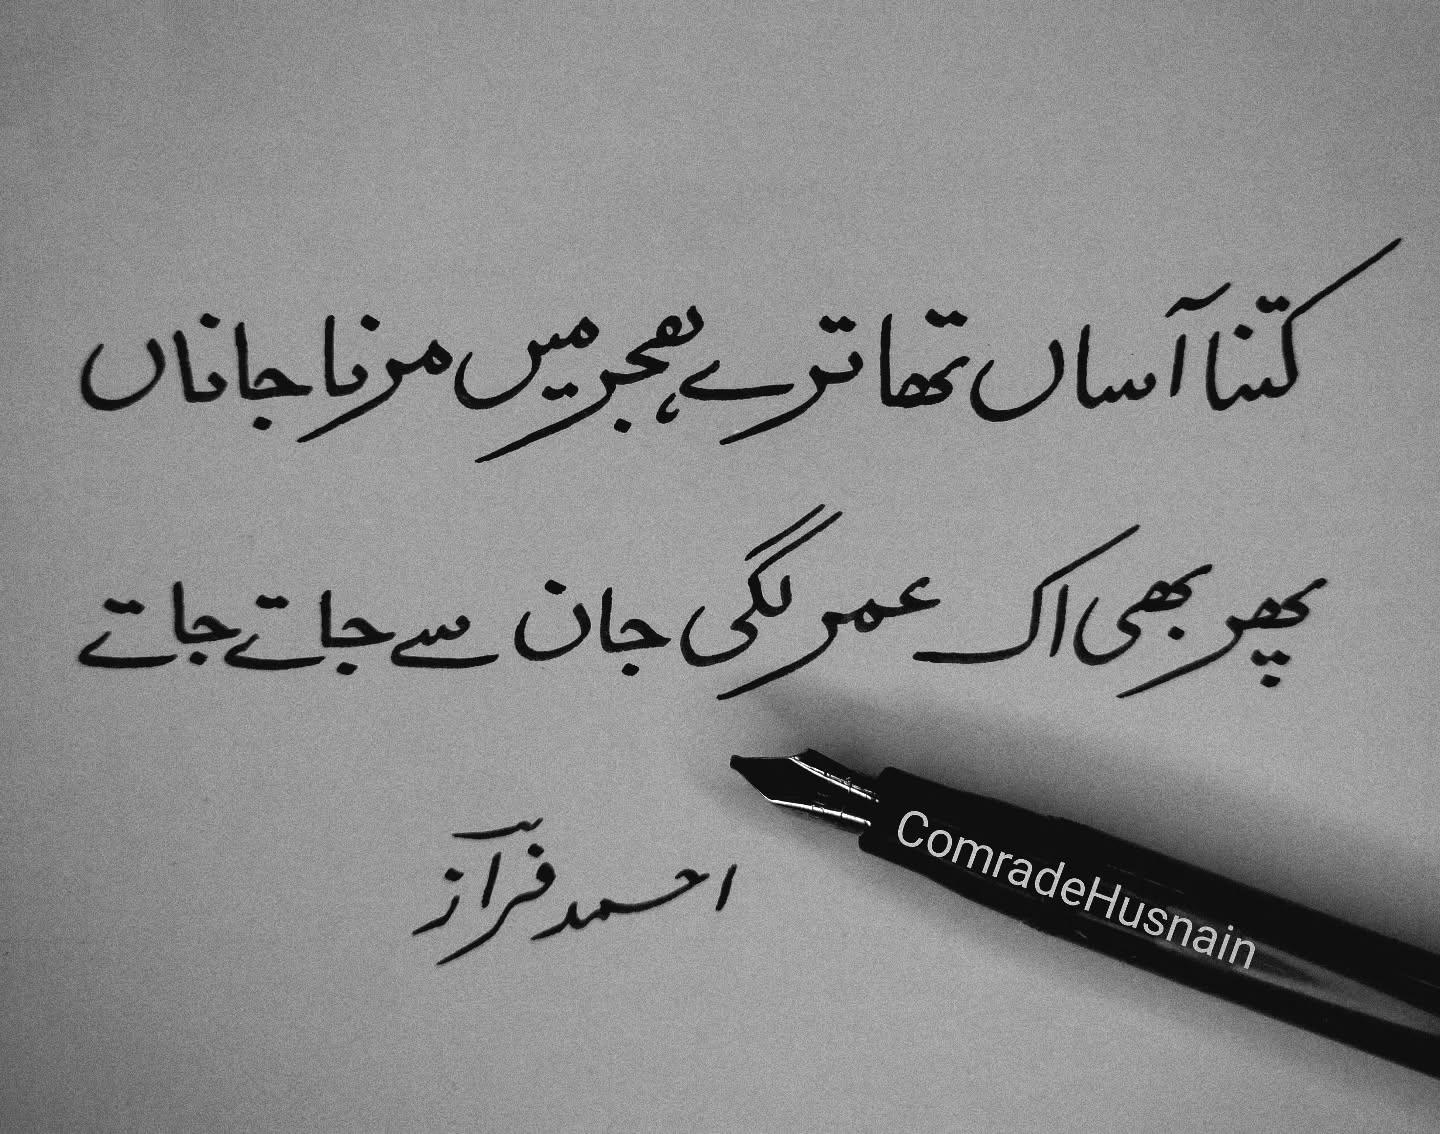 کتنا آساں تھا ترے ہجر میں مرنا جاناں
پھر بھی اک عمر لگی جان سے جاتے جاتے
احمد فرآز
ComradeHusnain